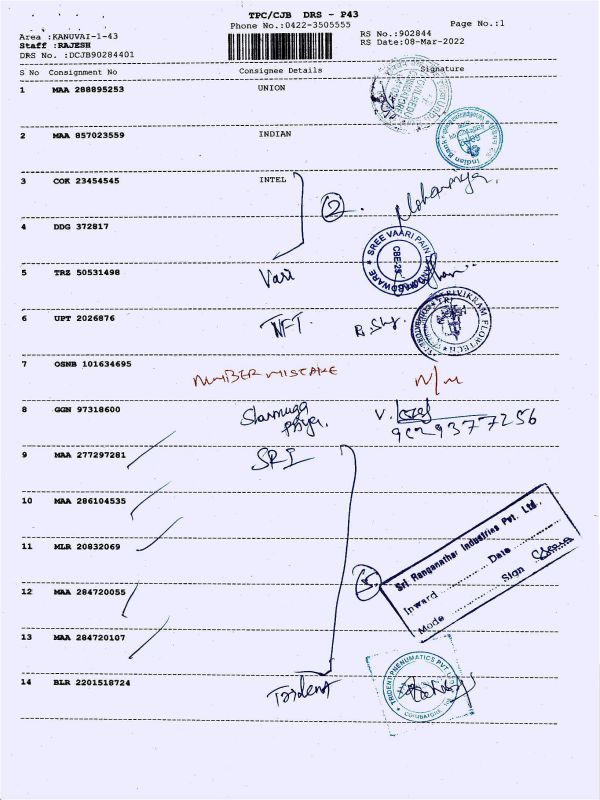 TPC/CJB DRS - P43
Phone No.:0422-3505555
Page No.:1
Area :KANUVAI-1-43
RS No.:902844
Staff :RAJESH
RS Date:08-Mar-2022
DRS No. :DCJB90284401
S No Consignment No Consignee Details Signature
1 MAA 288895253 UNION
2 MAA 857023559 INDIAN
Indian Bank
3 COK 23454545 INTEL
2
4 DDG 372817
SREE VAARI
CBE-25
5 TRZ 50531498 Vari
6 UPT 2026876 TNFT.
SRI TRIVIKRAM FLOWTECH
7 OSNB 101634695 NUMBER MISTAKE N/M
8 GGN 97318600 Shanmuga priya.
9 MAA 277297281 SRI
10 MAA 286104535
11 MLR 20832069
Sri Ranganathar Industries Pvt. Ltd.,
Inward .......... Date ..........
Mode .......... Sign
5
12 MAA 284720055
13 MAA 284720107
14 BLR 2201518724 Trident
TRIDENT PNEUMATICS PVT LTD
COIMBATORE